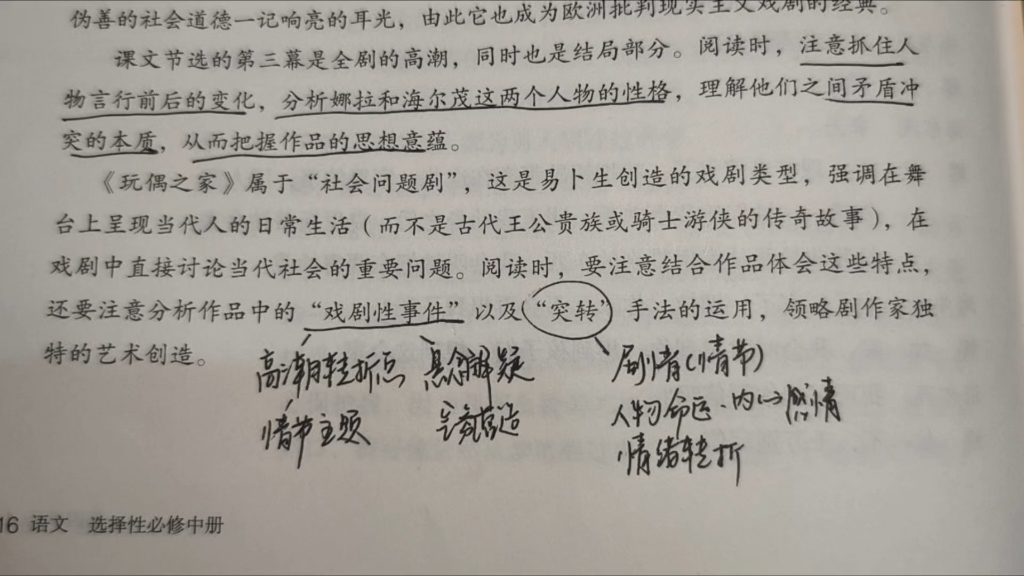 伪善的社会道德一记响亮的耳光，由此它也成为欧洲批判现实主义戏剧的经典。
课文节选的第三幕是全剧的高潮，同时也是结局部分。阅读时，注意抓住人
物言行前后的变化，分析娜拉和海尔茂这两个人物的性格，理解他们之间矛盾冲
突的本质，从而把握作品的思想意蕴。
《玩偶之家》属于“社会问题剧”，这是易卜生创造的戏剧类型，强调在舞
台上呈现当代人的日常生活（而不是古代王公贵族或骑士游侠的传奇故事），在
戏剧中直接讨论当代社会的重要问题。阅读时，要注意结合作品体会这些特点，
还要注意分析作品中的“戏剧性事件”以及“突转”手法的运用，领略剧作家独
特的艺术创造。
高潮转折点 悬念解疑 剧情(情节)
情节主题 营造 人物命运·内心感情
情绪转折
16 语文 选择性必修中册